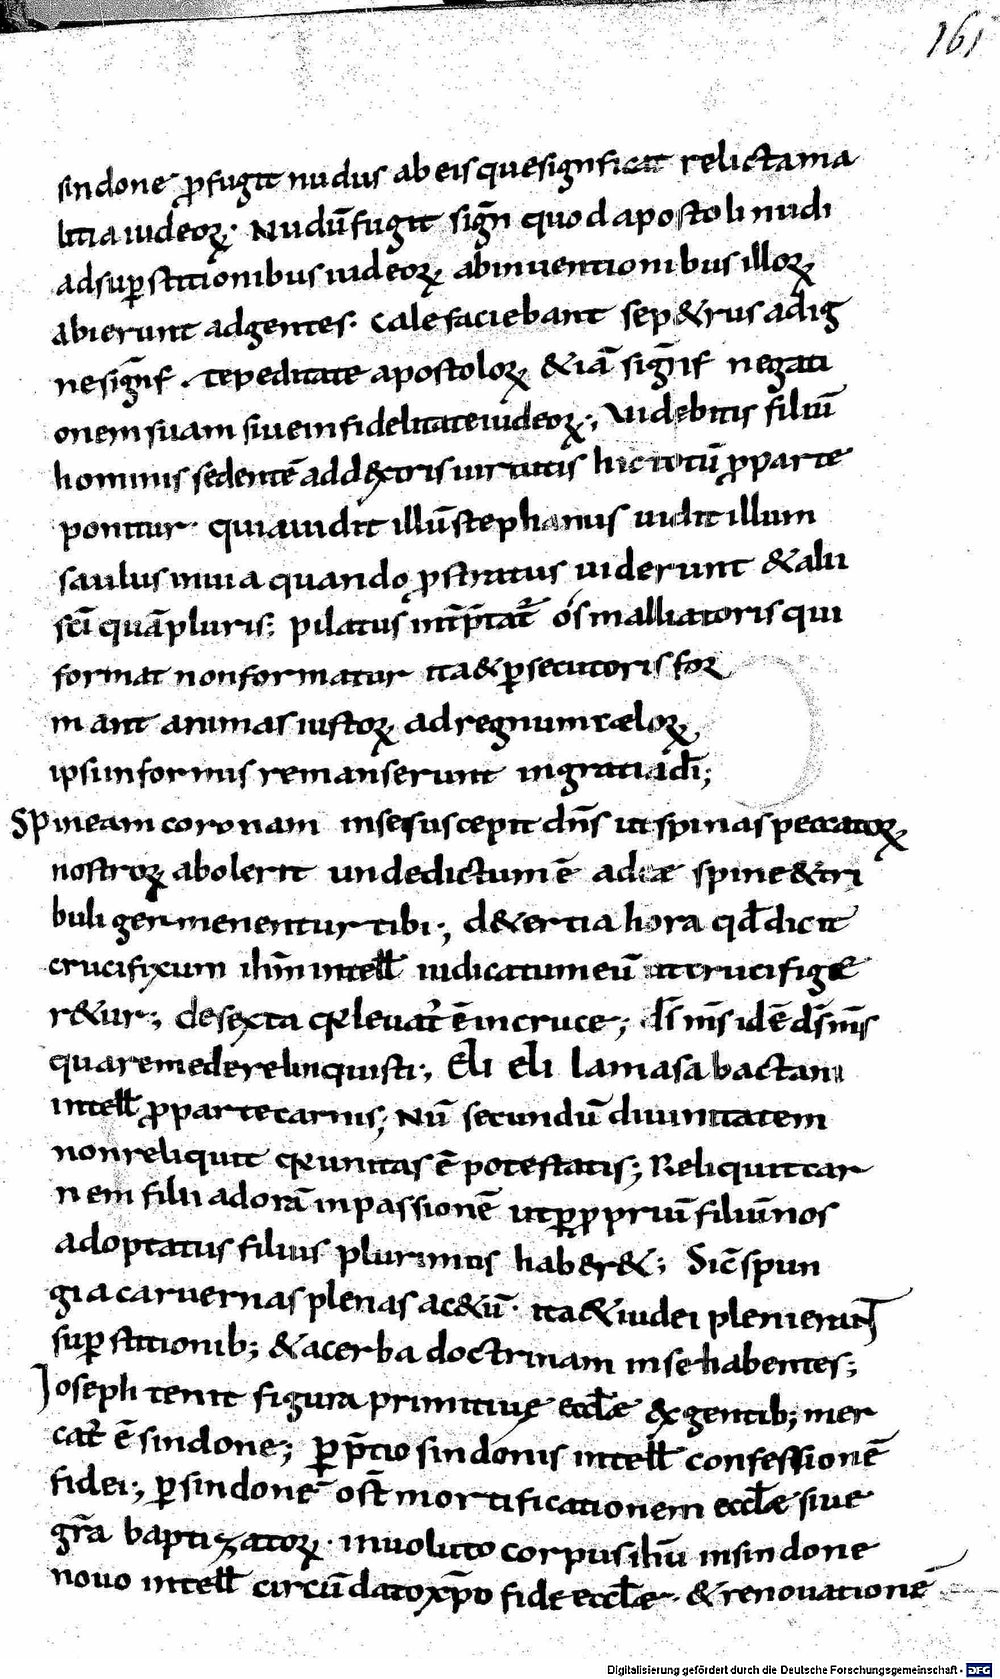 161
sindone ꝓfugit nudus ab eis que significat relicta ma
litia iudeoꝝ. Nudū fugit sigñ quod apostoli nudi
ad suꝑstitionibus iudeoꝝ ab inuentionibus illoꝝ
abierunt ad gentes. Calefaciebant se p&rus ad ig
ne signif̄. tepeditate apostoloꝝ & iā signif̄ negati
onem suam siue infidelitate iudeoꝝ; Videbitis filiū
hominis sedentē ad dextris uirtutis hic totū ꝓ parte
ponitur. quia uidit illū stephanus uidit illum
saulus in uia quando ꝓstratus uiderunt & alii
sc̄i quā pluris; pilatus int̄p̄tat̄ os malliatoris qui
format non formatur ita & ꝑsecutoris for
mant animas iustoꝝ ad regnum cæloꝝ
ipsi informis remanserunt in gratia dī;
Spineam coronam in se suscepit dn̄s ut spinas peccatoꝝ
nostroꝝ abolerit unde dictum ē adæ spine & tri
buli germenentur tibi; d& ertia hora qd̄ dicit
crucifixum ih̄m intell̄ iudicatum eū ut crucifige
r&ur; de sexta qꝛ leuat̄ ē in cruce; d̄s m̄s id ē d̄s m̄s
quare me dereliquisti; Eli eli lamasabactani
intell̄ ꝓ parte carnis; Nū secundū diuinitatem
non reliquit qꝛ unitas ē potestatis; Reliquit car
nem filii ad orā in passionē ut ꝑ ꝓpriū filiū nos
adoptatus filius plurimus haber&; Sic̄ spun
gia caruernas plenas ac&ū. ita & iudei pleni erant
suꝑstitionib; & acerba doctrinam in se habentes;
Ioseph tenit figura primitiuę eccl̄æ ex gentib; mer
cat̄ ē sindone; ꝑ p̄tio sindonis intell̄ confessionē
fidei; ꝑ sindone ost̄ mortificationem eccl̄æ siue
gr̄a baptizatoꝝ. inuoluto corpus ih̄u in sindone
nouo intell̄ circūdato xp̄o fide eccl̄æ. & renouationē
Digitalisierung gefördert durch die Deutsche Forschungsgemeinschaft - DFG